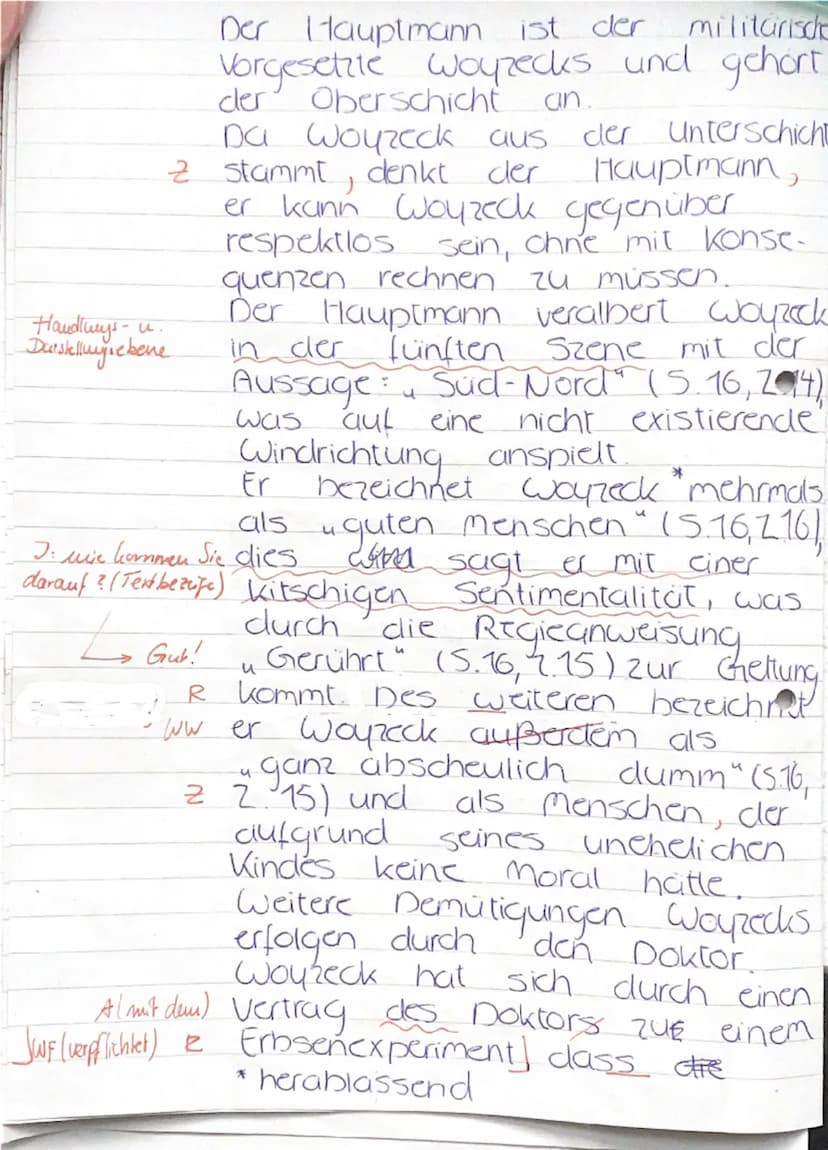 Der Hauptmann ist der militärische
Vorgesetzte Woyzecks und gehört
der Oberschicht an.
Da Woyzeck aus der Unterschicht
Z stammt, denkt der Hauptmann,
er kann Woyzeck gegenüber
respektlos sein, ohne mit Konse-
quenzen rechnen zu müssen.
Der Hauptmann veralbert Woyzeck
Handlungs- u.
Darstellungsebene
in der fünften Szene mit der
Aussage: „Süd-Nord“ (S.16, Z.14),
was auf eine nicht existierende
Windrichtung anspielt.
Er bezeichnet Woyzeck *mehrmals
als „guten Menschen“ (S.16, Z.16),
J: wie kommen Sie
darauf? (Textbezüge)
dies sagt er mit einer
kitschigen Sentimentalität, was
durch die Regieanweisung
→ Gut!
„Gerührt“ (S.16, Z.15) zur Geltung
R kommt. Des weiteren bezeichnet
WW er Woyzeck außerdem als
„ganz abscheulich dumm“ (S.16,
Z Z.15) und als Menschen, der
aufgrund seines unehelichen
Kindes keine Moral hätte.
Weitere Demütigungen Woyzecks
erfolgen durch den Doktor.
Woyzeck hat sich durch einen
A (mit dem) Vertrag des Doktors zu einem
WF (verpflichtet) R Erbsenexperiment dass die
*herablassend